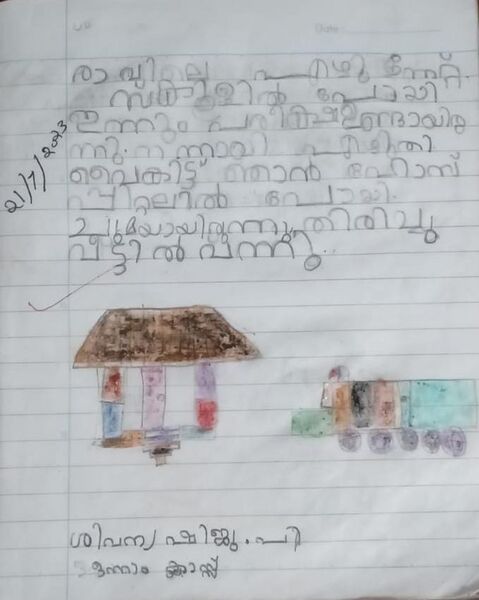 Date
21/7/2023
രാവിലെ എഴുന്നേറ്റ്.
സ്കൂളിൽ പോയി
ഇന്നും പരീക്ഷഉണ്ടായിരു
ന്നു. നന്നായി എഴുതി
വൈകിട്ട് ഞാൻ ഹോസ്
പിറ്റലിൽ പോയി.
ചുമയായിരുന്നു തിരിച്ചു
വീട്ടിൽ വന്നു.
ശിവന്യ ഷിജു. പി
ഒന്നാം ക്ലാസ്സ്